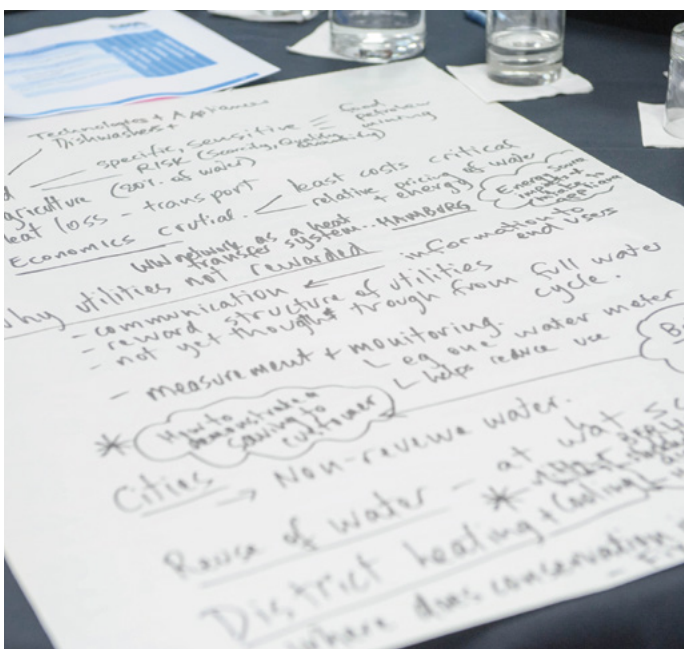 Technologies + Appliances
Dishwashers +
specific, sensitive
Food
petroleum
mining
RISK (Scarcity, Quality,
agriculture (20% of water)
heat loss - transport
least costs critical
Economics crutial.
relative pricing of water
+ energy
Energy source
important
WW network as a heat
transfer system.. HAMBURG
Why utilities not rewarded
- communication ← information to
end users
- reward structure of utilities
- not yet thought trough from full water
cycle.
- measurement + monitoring.
eg one water meter
helps reduce use
* How to
demonstrate a
saving to
customer
Cities → Non-revenue water.
Reuse of water - at wat
District heating + cooling
where does conservation